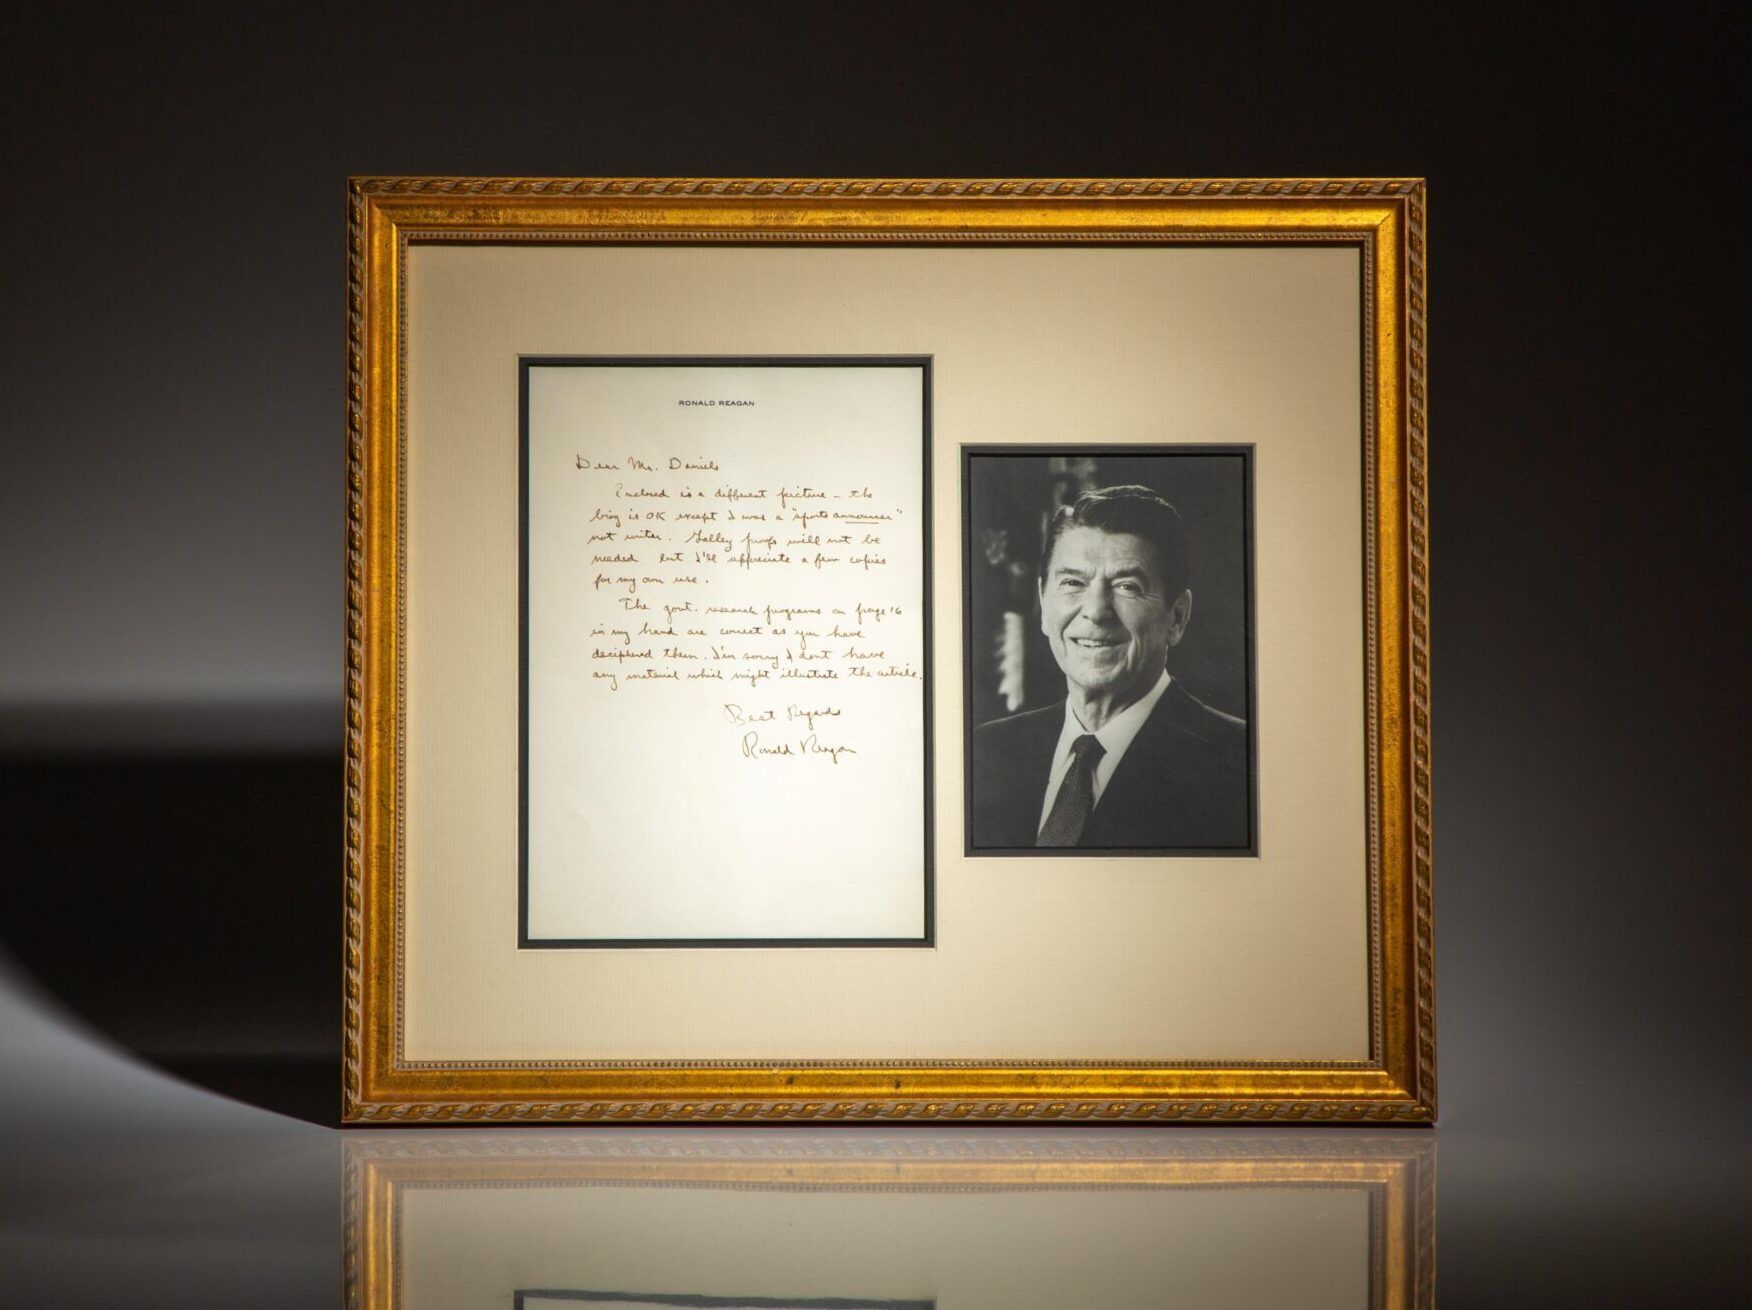 RONALD REAGAN
Dear Mr. Daniels
Enclosed is a different picture – the
biog is OK except I was a "sports announcer"
not writer. Galley proofs will not be
needed but I'll appreciate a few copies
for my own use.
The govt. research programs on page 16
in my hand are correct as you have
deciphered them. I'm sorry I don't have
any material which might illustrate the article.
Best Regards
Ronald Reagan